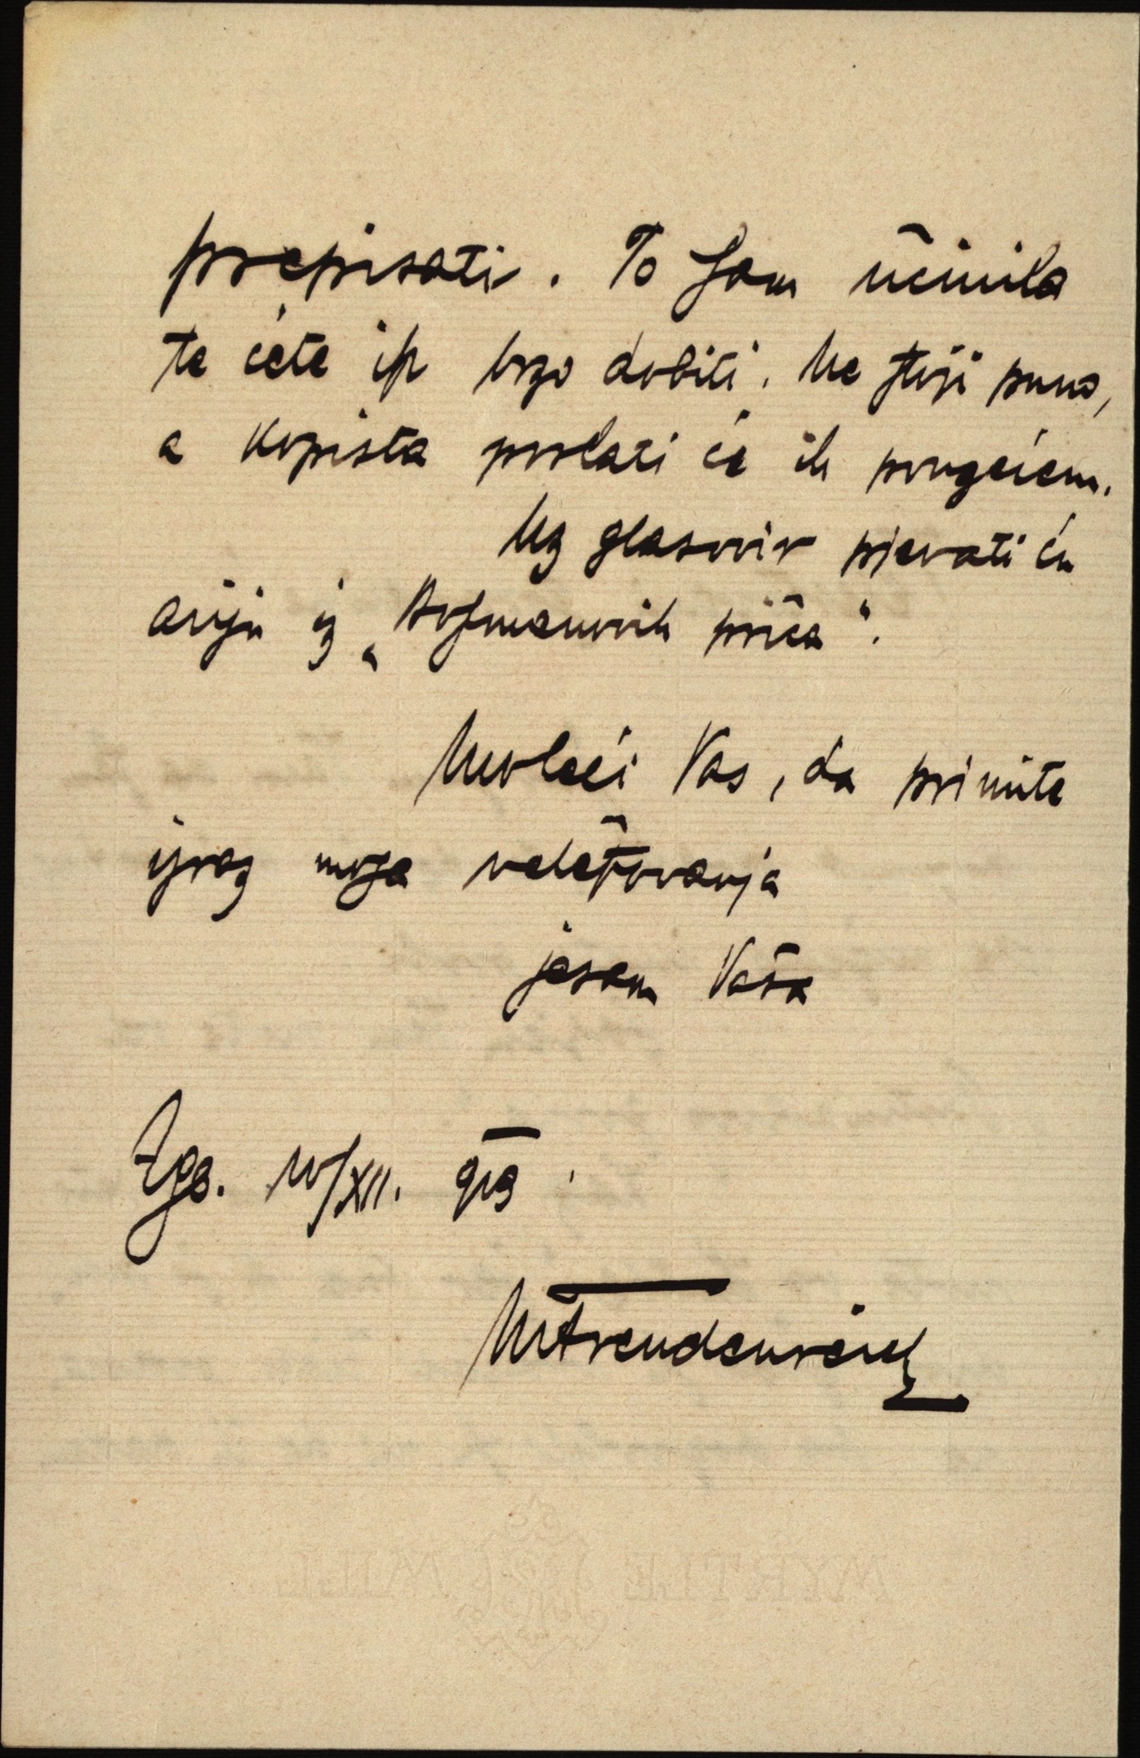 prepisati. To sam učinila
te ćete ih brzo dobiti. Ne stoji puno,
a kopista poslati će ih pouzećem.
Uz glasovir pjevati ću
ariju iz „Hofmanovih priča“.
Moleći Vas, da primite
izraz moga veleštovanja
jesam Vaša
Zgb. 10/XII. 913
MFreudenreich
MYRTLE MILL